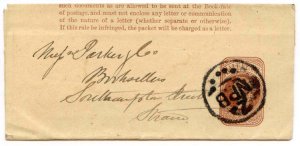 such documents as are allowed to be sent at the Book-rate
of postage, and must not enclose any letter or communication
of the nature of a letter (whether separate or otherwise).
If this rule be infringed, the packet will be charged as a letter.
Messrs Parker & Co
Booksellers
Southampton Street
Strand